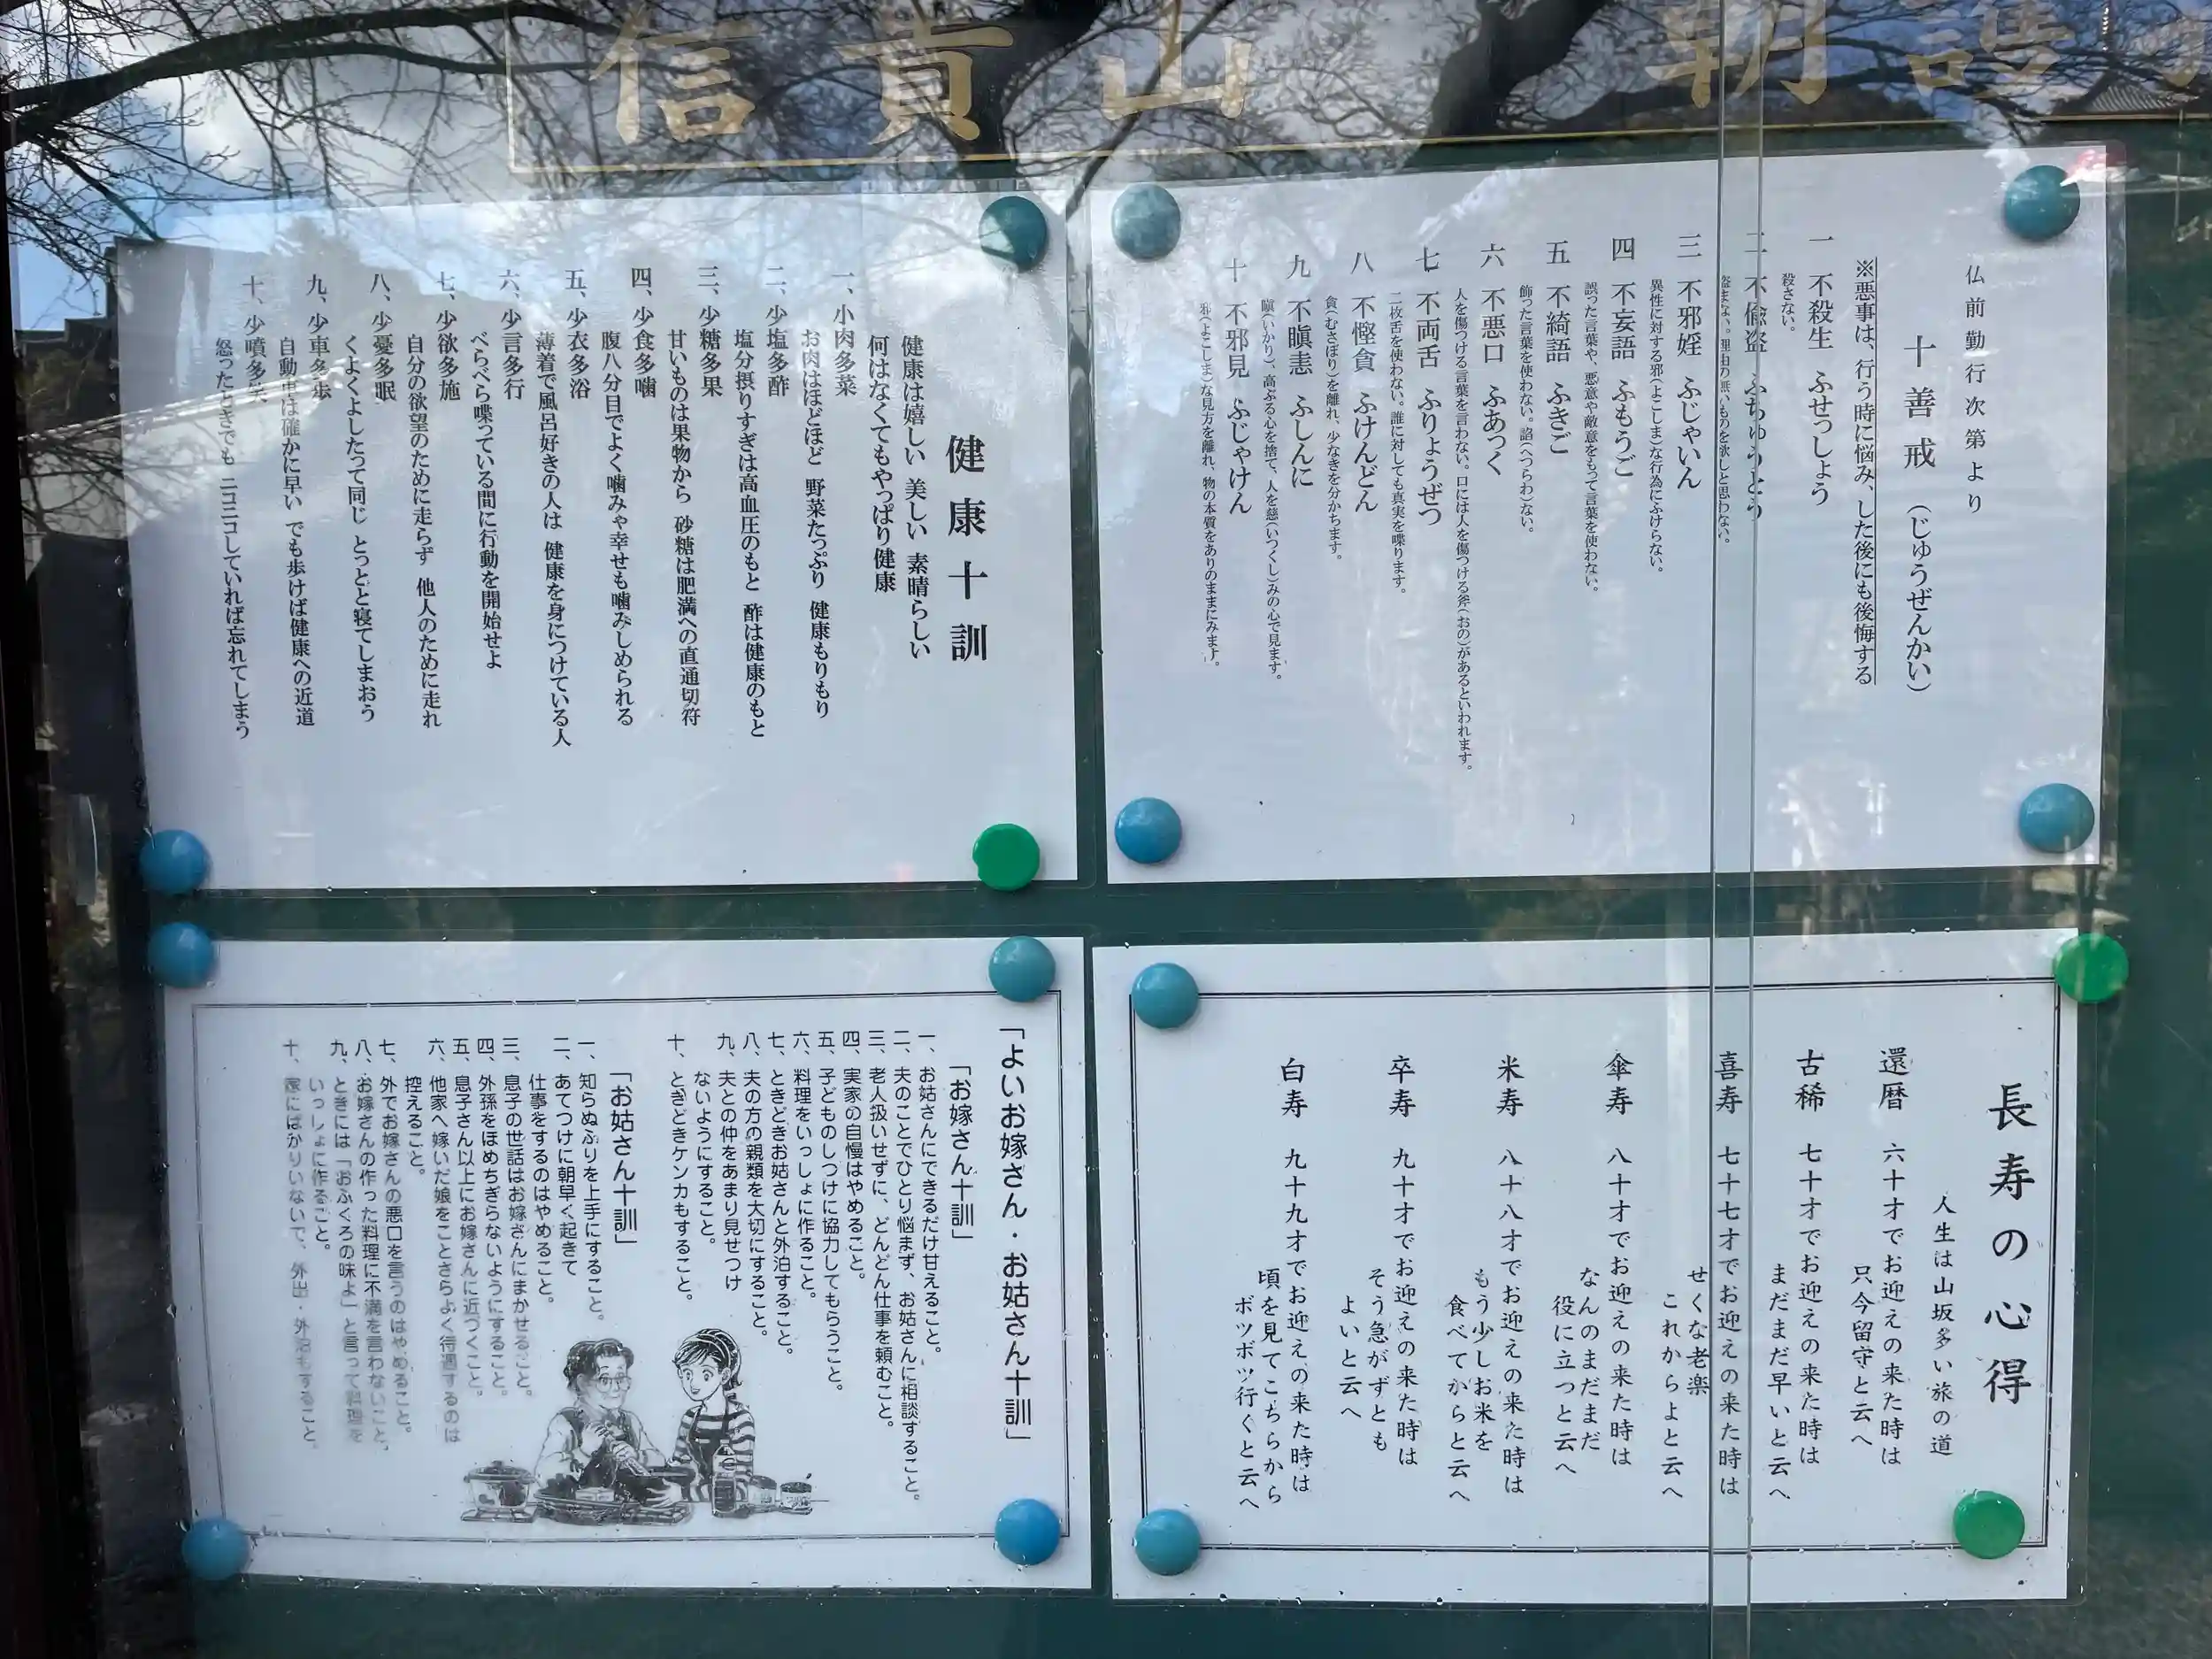 信貴山 朝護
仏前勤行次第より
十善戒(じゅうぜんかい)
※悪事は、行う時に悩み、した後にも後悔する
一 不殺生 ふせっしょう
殺さない。
二 不偸盗 ふちゅうとう
盗まない。理由の無いものを欲しと思わない。
三 不邪婬 ふじゃいん
異性に対する邪(よこしま)な行為にふけらない。
四 不妄語 ふもうご
誤った言葉や、悪意や敵意をもって言葉を使わない。
五 不綺語 ふきご
飾った言葉を使わない。諂(へつらわ)ない。
六 不悪口 ふあっく
人を傷つける言葉を言わない。口には人を傷つける斧(おの)があるといわれます。
七 不両舌 ふりょうぜつ
二枚舌を使わない。誰に対しても真実を喋ります。
八 不慳貪 ふけんどん
貪(むさぼり)を離れ、少なきを分かちます。
九 不瞋恚 ふしんに
瞋(いかり)、高ぶる心を捨て、人を慈(いつくし)みの心で見ます。
十 不邪見 ふじゃけん
邪(よこしま)な見方を離れ、物の本質をありのままにみます。
健康十訓
健康は嬉しい 美しい 素晴らしい
何はなくてもやっぱり健康
一、小肉多菜
お肉はほどほど 野菜たっぷり 健康もりもり
二、少塩多酢
塩分摂りすぎは高血圧のもと 酢は健康のもと
三、少糖多果
甘いものは果物から 砂糖は肥満への直通切符
四、少食多噛
腹八分目でよく噛みゃ幸せも噛みしめられる
五、少衣多浴
薄着で風呂好きの人は 健康を身につけている人
六、少言多行
べらべら喋っている間に行動を開始せよ
七、少欲多施
自分の欲望のために走らず 他人のために走れ
八、少憂多眠
くよくよしたって同じ とっとと寝てしまおう
九、少車多歩
自動車は確かに早い でも歩けば健康への近道
十、少噴多笑
怒ったときでも ニコニコしていれば忘れてしまう
長寿の心得
人生は山坂多い旅の道
還暦 六十才でお迎えの来た時は
只今留守と云へ
古稀 七十才でお迎えの来た時は
まだまだ早いと云へ
喜寿 七十七才でお迎えの来た時は
せくな老楽
これからよと云へ
傘寿 八十才でお迎えの来た時は
なんのまだまだ
役に立つと云へ
米寿 八十八才でお迎えの来た時は
もう少しお米を
食べてからと云へ
卒寿 九十才でお迎えの来た時は
そう急がずとも
よいと云へ
白寿 九十九才でお迎えの来た時は
頃を見てこちらから
ボツボツ行くと云へ
「よいお嫁さん・お姑さん十訓」
「お嫁さん十訓」
一、お姑さんにできるだけ甘えること。
二、夫のことでひとり悩まず、お姑さんに相談すること。
三、老人扱いせずに、どんどん仕事を頼むこと。
四、実家の自慢はやめること。
五、子どものしつけに協力してもらうこと。
六、料理をいっしょに作ること。
七、ときどきお姑さんと外泊すること。
八、夫の方の親類を大切にすること。
九、夫との仲をあまり見せつけ
ないようにすること。
十、ときどきケンカもすること。
「お姑さん十訓」
一、知らぬふりを上手にすること。
二、あてつけに朝早く起きて
仕事をするのはやめること。
三、息子の世話はお嫁さんにまかせること。
四、外孫をほめちぎらないようにすること。
五、息子さん以上にお嫁さんに近づくこと。
六、他家へ嫁いだ娘をことさらよく待遇するのは
控えること。
七、外でお嫁さんの悪口を言うのはやめること。
八、お嫁さんの作った料理に不満を言わないこと。
九、ときには「おふくろの味よ」と言って料理を
いっしょに作ること。
十、家にばかりいないで、外出・外泊もすること。